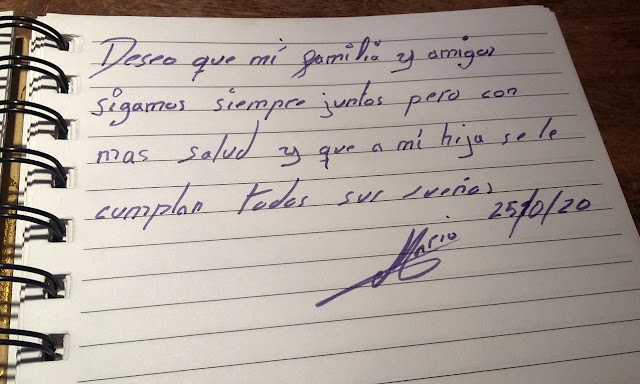 Deseo que mi familia y amigos
sigamos siempre juntos pero con
mas salud y que a mi hija se le
cumplan todos sus sueños
25/10/20
Mario